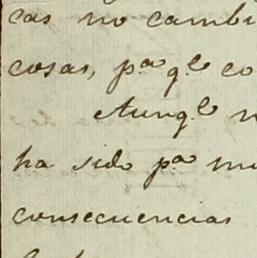 cas no cambi
cosas, pa. qe. co
Aunqe.
ha sido pa. mi
consecuencias